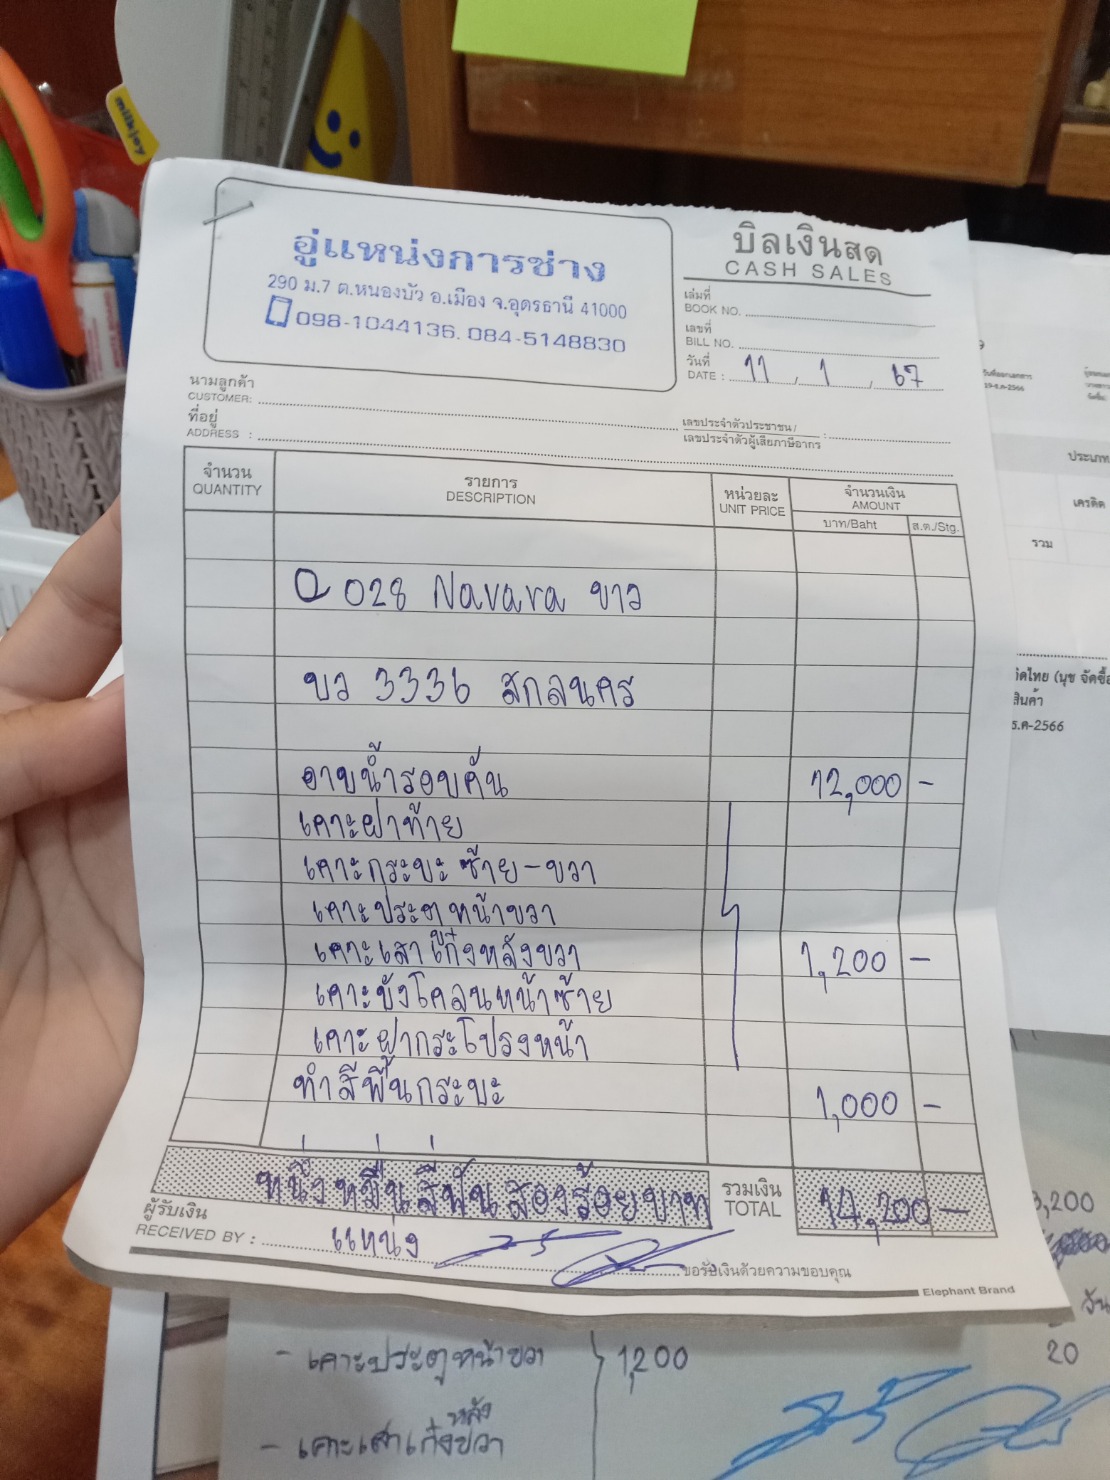 milkjoy
อู่แหน่งการช่าง
290 ม.7 ต.หนองบัว อ.เมือง จ.อุดรธานี 41000
098-1044136. 084-5148830
บิลเงินสด
CASH SALES
เล่มที่
BOOK NO.
เลขที่
BILL NO.
วันที่
DATE : 11 , 1 , 67
นามลูกค้า
CUSTOMER:
ที่อยู่
ADDRESS :
เลขประจำตัวประชาชน /
เลขประจำตัวผู้เสียภาษีอากร :
จำนวน
QUANTITY
รายการ
DESCRIPTION
หน่วยละ
UNIT PRICE
จำนวนเงิน
AMOUNT
บาท/Baht
ส.ต./Stg.
028 Navara ขาว
บว 3336 สกลนคร
อาบน้ำรอบคัน 12,000 -
เคาะฝาท้าย
เคาะกระบะ ซ้าย-ขวา
เคาะประตูหน้าขวา
เคาะเสาเก๋งหลังขวา 1,200 -
เคาะบังโคลนหน้าซ้าย
เคาะฝากระโปรงหน้า
ทำสีพื้นกระบะ 1,000 -
หนึ่งหมื่นสี่พันสองร้อยบาท
รวมเงิน
TOTAL
14,200 -
ผู้รับเงิน
RECEIVED BY : แหน่ง
ขอรับเงินด้วยความขอบคุณ
Elephant Brand
วันที่ออกเอกสาร
ประเภท
เครดิต
รวม
ิดไทย (นุช จัดซื้อ
สินค้า
ธ.ค-2566
3,200
วัน
20
- เคาะประตูหน้าขวา 1,200
หลัง
- เคาะเสาเก๋งขวา